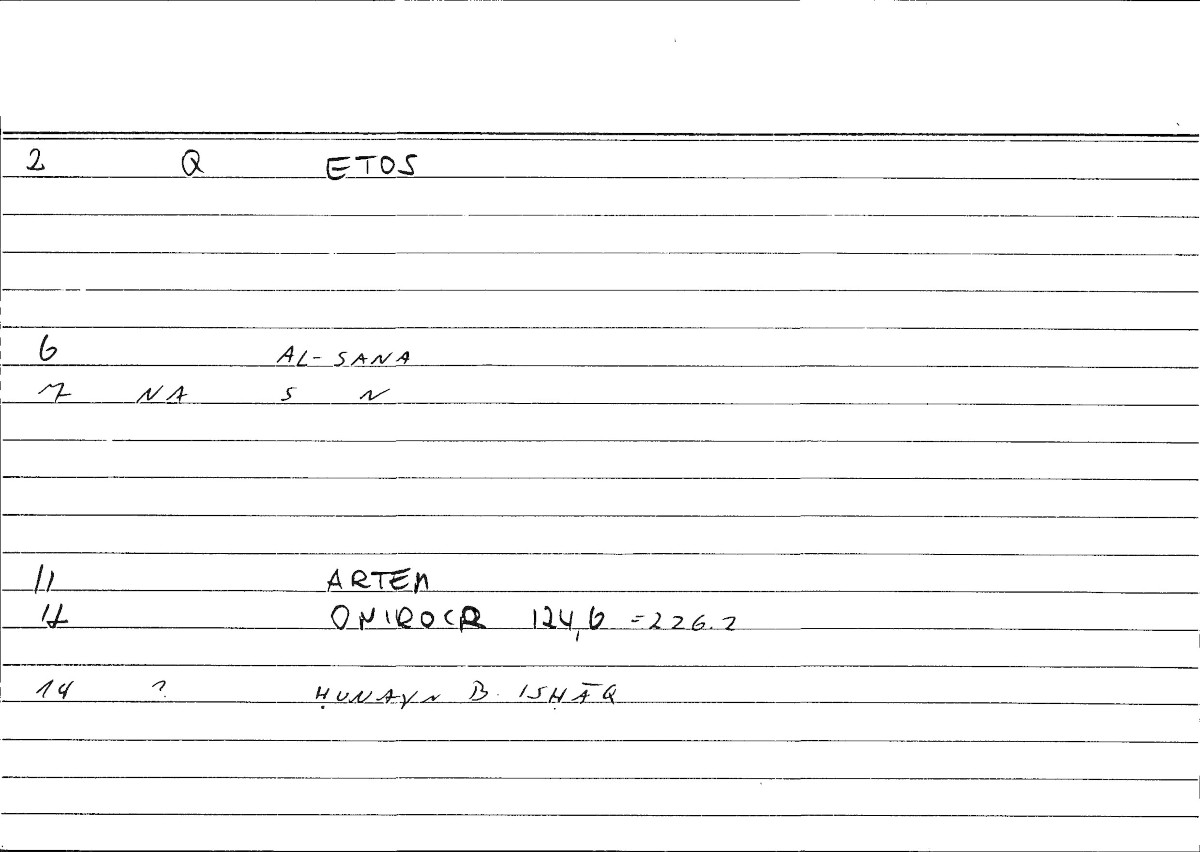 2 Q ETOS
6 AL-SANA
7 NA S N
11 ARTEM
12 ONIROCR 124,6 =226.2
14 ? ḤUNAYN B. ISḤĀQ